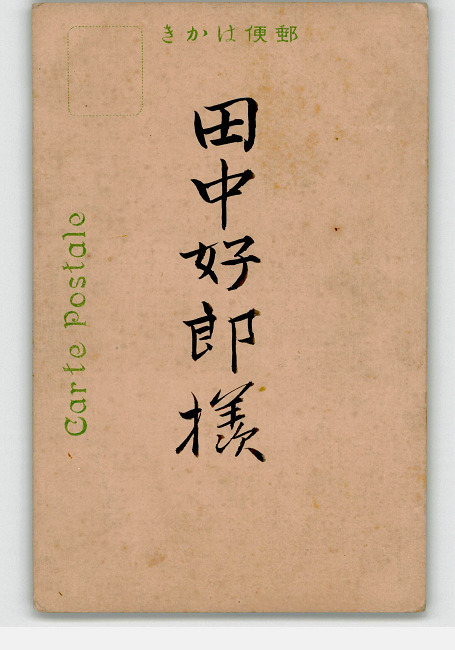 きかは便郵
田中好郎様
Carte Postale